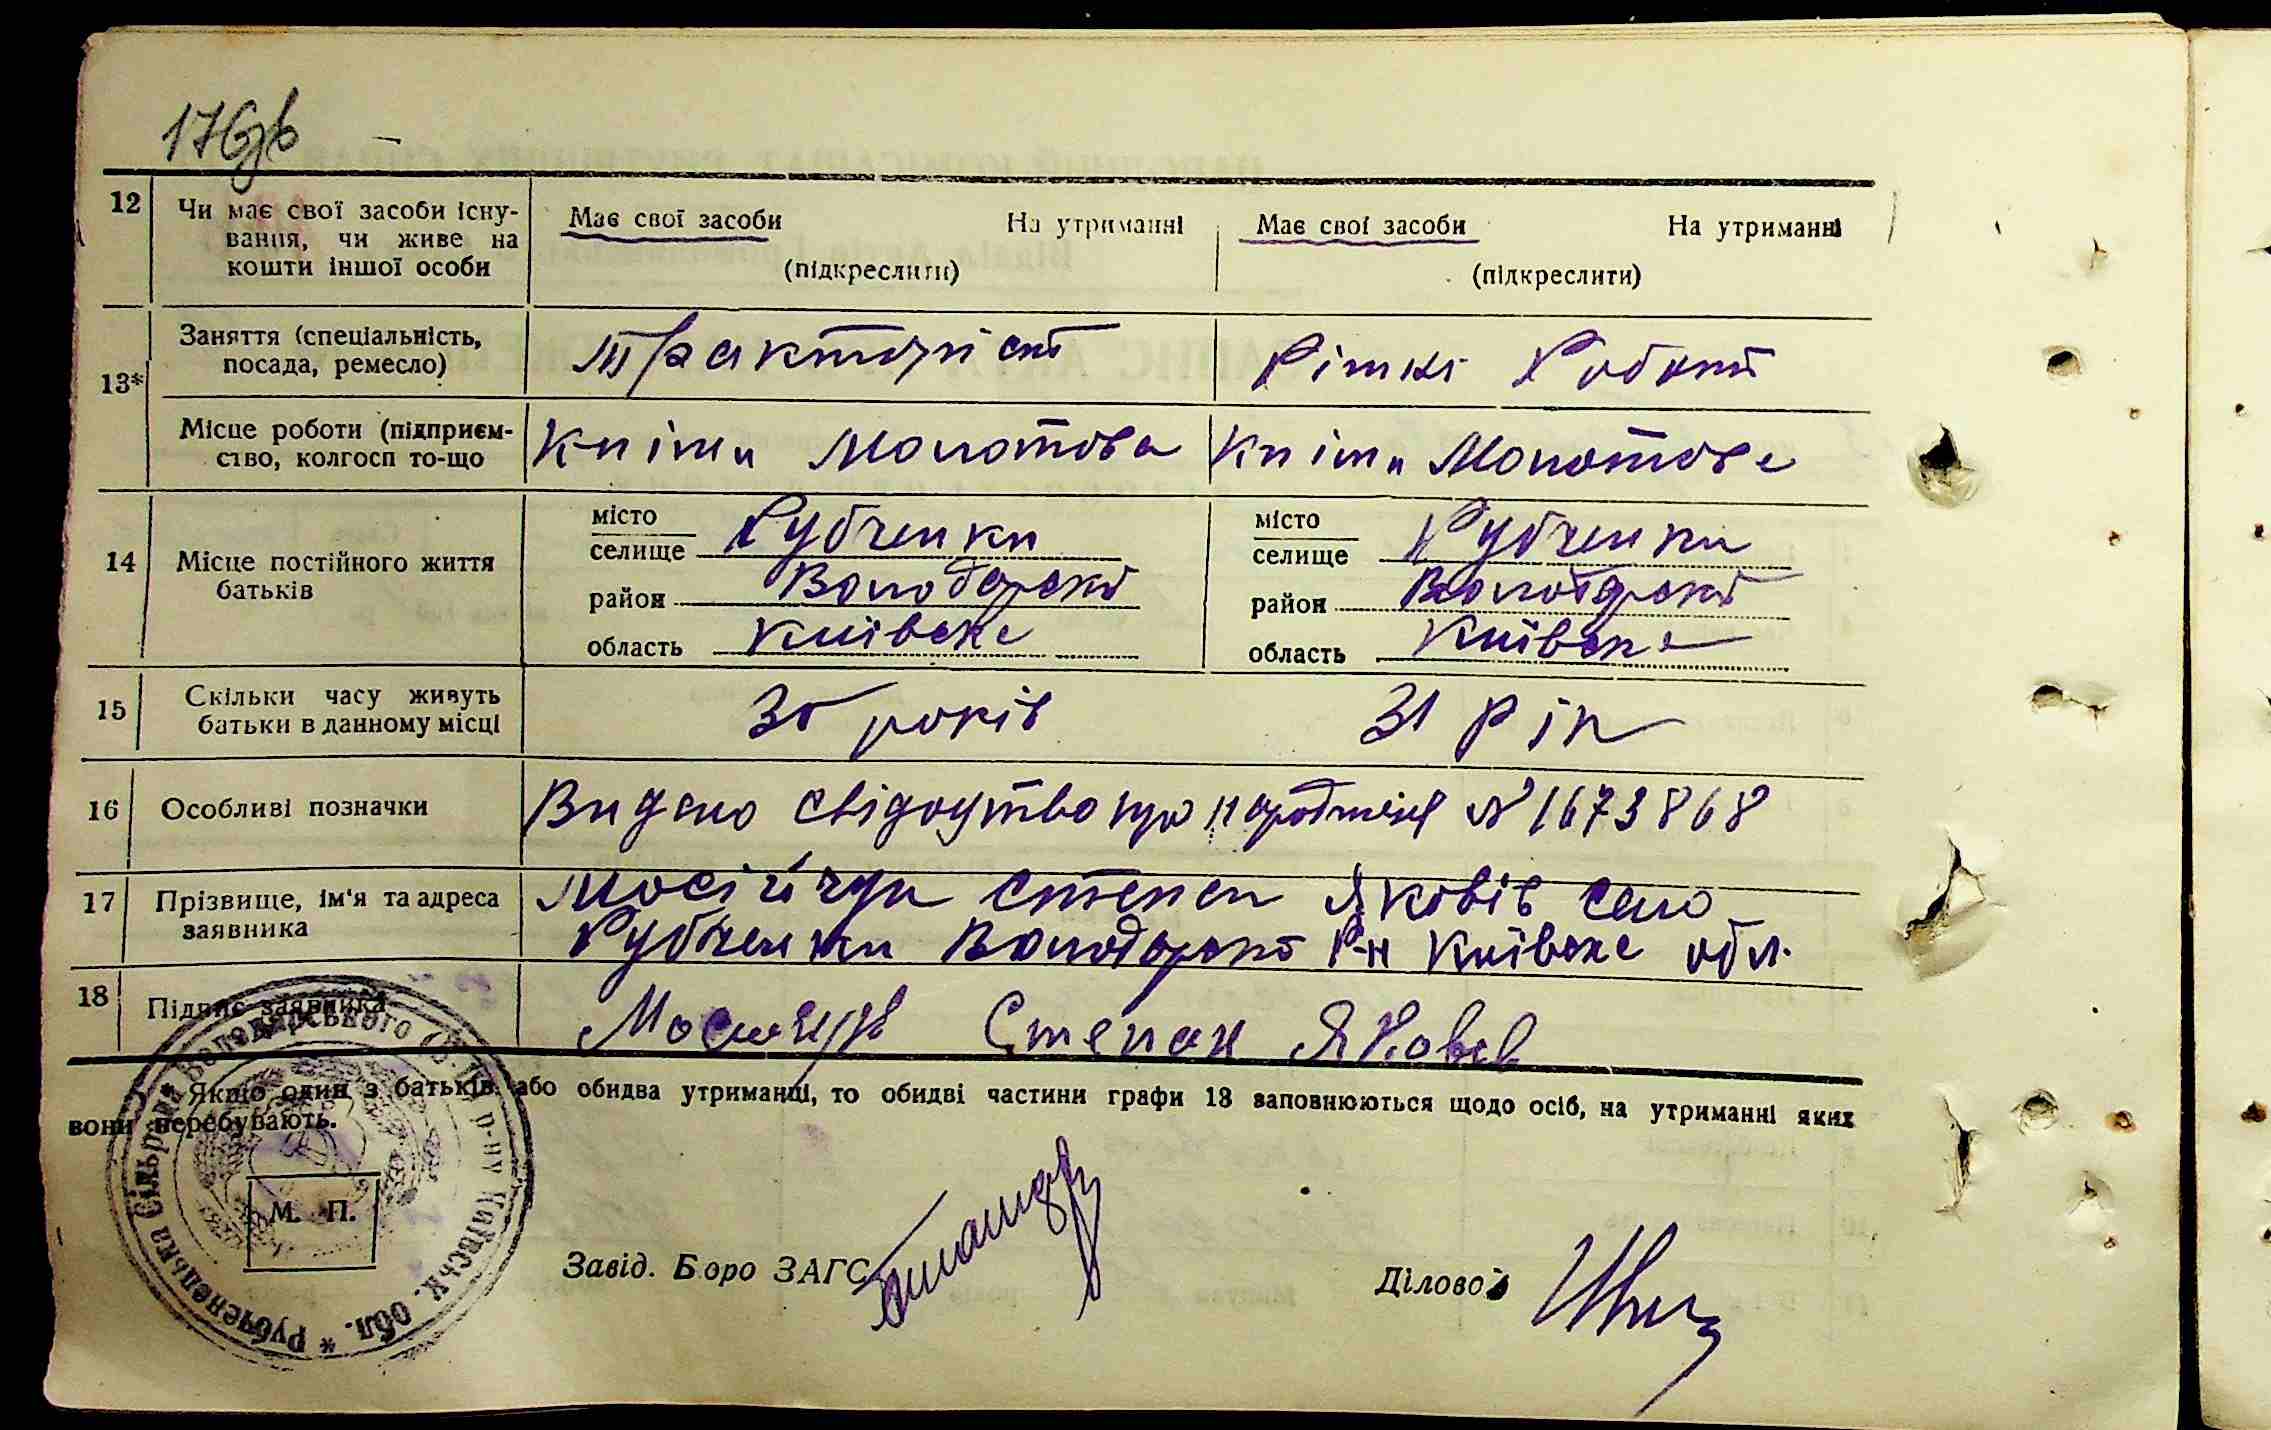 176зв
12 Чи має свої засоби існу-
вання, чи живе на
кошти іншої особи
Має свої засоби На утриманні
(підкреслити)
Має свої засоби На утриманні
(підкреслити)
13*
Заняття (спеціальність,
посада, ремесло)
тракторист
Різні Роботи
Місце роботи (підприєм-
ство, колгосп то-що
Молотова
Молотова
14 Місце постійного життя
батьків
місто
селище Рубченки
район Володарський
область Київська
місто
селище Рубченки
район Володарський
область Київська
15 Скільки часу живуть
батьки в данному місці
років
31 рік
16 Особливі позначки
Видано свідоцтво про народження № 1673868
17 Прізвище, ім'я та адреса
заявника
Мосійчук Степан Яковів село
Рубченки Володарського р-н Київська обл.
18 Підпис заявника
Степан Яковів
* Якщо один з батьків або обидва утриманці, то обидві частини графи 13 заповнюються щодо осіб, на утриманні яких
вони перебувають.
* Рубченецька Сільрада Володарського р-ну Київськ. обл.
М. П.
Завід. Бюро ЗАГС
Діловод